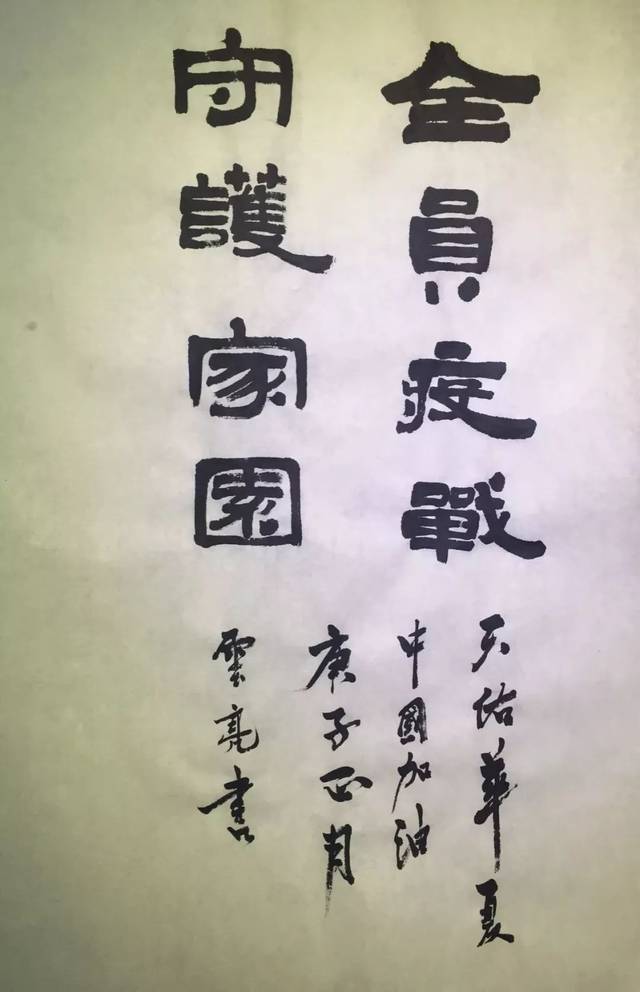 全員疫戰
守護家園
天佑華夏
中國加油
庚子正月
雲亮書